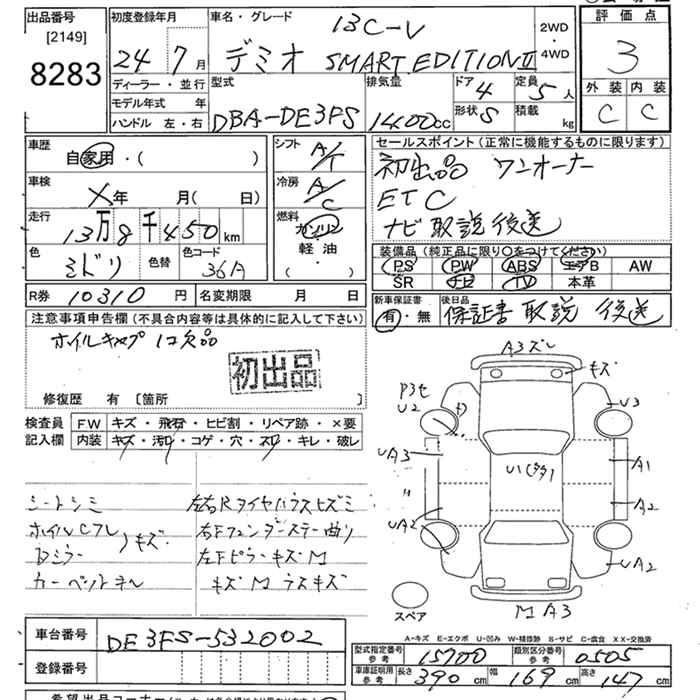 出品番号
[2149]
8283
初度登録年月
24 7月
ディーラー・並行
モデル年式 年
ハンドル 左・右
車名・グレード
13C-V
デミオ SMART EDITIONII
2WD
4WD
型式
DBA-DE3FS
排気量
1400cc
ドア 4
形状 S
定員 5人
積載 kg
評価点
3
外装 内装
C C
車歴
自家用・( )
車検
X年 月( 日)
走行
13万8千450km
色
ミドリ
色替
色コード
36A
シフト
A/T
冷房
A/C
燃料
ガソリン
軽油
( )
R券 10310円
名変期限 月 日
セールスポイント(正常に機能するものに限ります)
初出品 ワンオーナー
ETC
ナビ取説後送
装備品(純正品に限り○をつけてください)
PS PW ABS エアB AW
SR ナビ TV 本革
新車保証書
有・無
後日品
保証書 取説 後送
注意事項申告欄(不具合内容等は具体的に記入して下さい)
ホイルキャップ 1コ欠品
初出品
修復歴 有 [箇所
検査員
記入欄
FW キズ・飛石・ヒビ割・リペア跡・×要
内装 キズ・汚れ・コゲ・穴・スリ・キレ・破レ
シートシミ
ホイルCフレ
Dミラー
キズ
左右Rタイヤハウスヒズミ
右Fフェンダーステー曲り
左Fピラーキズ M
キズ M ラスキズ
A3ズレ
キズ
U2
U3
UA3
U1
A1
〃
A2
UA2
UA2
スペア
MA3
A-キズ E-エクボ U-凹み W-補修跡 S-サビ C-腐食 XX-交換済
車台番号 DE3FS-532002
登録番号
型式指定番号
参考
15700
類別区分番号
参考
0505
車庫証明用
参考
長さ 390cm
幅 169cm
高さ 147cm